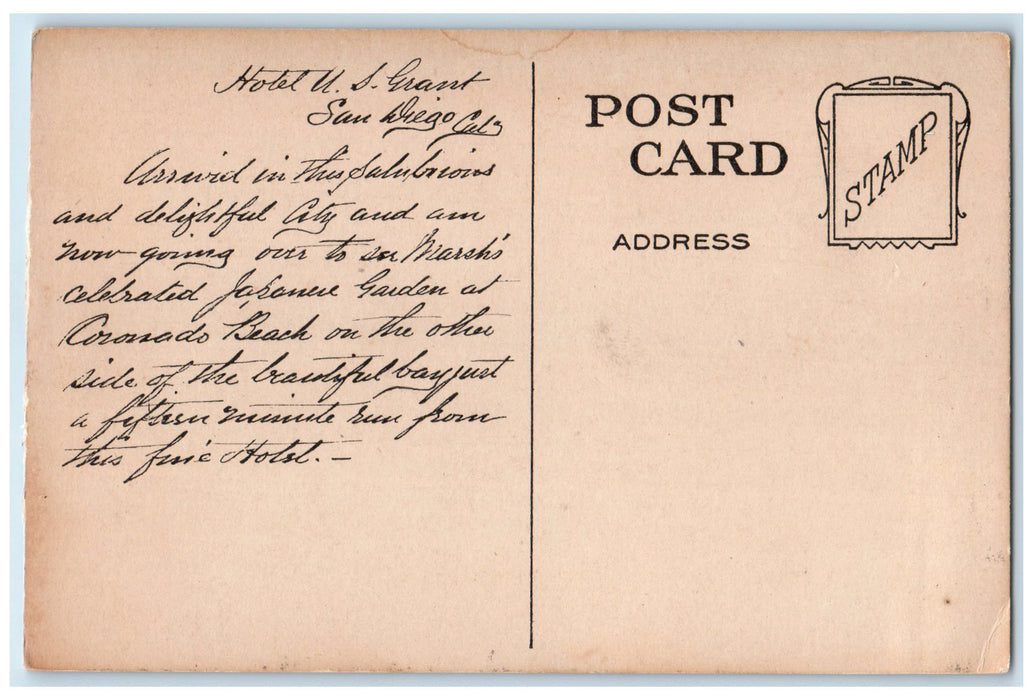 Hotel U. S. Grant
San Diego Cal
Arrived in this Salubrious
and delightful City and am
now going over to see Marsh's
celebrated Japanese Garden at
Coronado Beach on the other
side of the beautiful bay just
a fifteen minute run from
this fine Hotel. —
POST
CARD
ADDRESS
STAMP